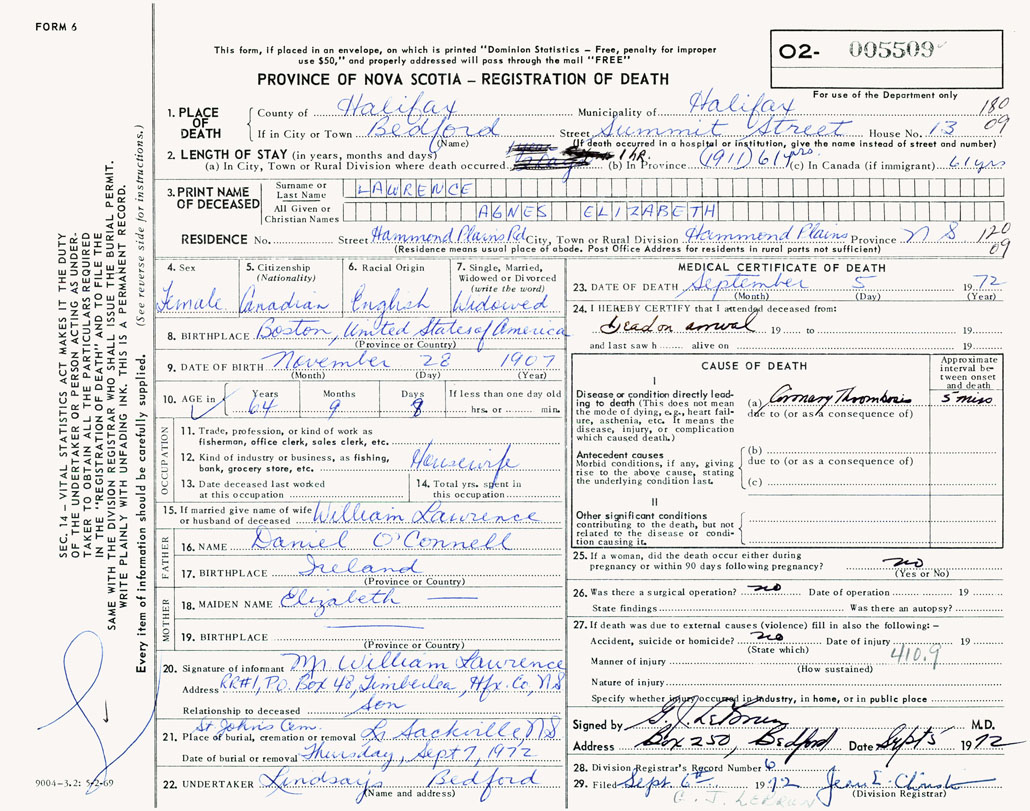 FORM 6
This form, if placed in an envelope, on which is printed "Dominion Statistics – Free, penalty for improper
use $50," and properly addressed will pass through the mail "FREE"
PROVINCE OF NOVA SCOTIA – REGISTRATION OF DEATH
02- 005509
For use of the Department only
180
09
1. PLACE OF DEATH
County of Halifax Municipality of Halifax
If in City or Town Bedford Street Summit Street House No. 13
(Name) (If death occurred in a hospital or institution, give the name instead of street and number)
2. LENGTH OF STAY (in years, months and days)
(a) In City, Town or Rural Division where death occurred 1 hr. (b) In Province (1911) 61 yrs (c) In Canada (if immigrant) 61 yrs
3. PRINT NAME OF DECEASED
Surname or Last Name LAWRENCE
All Given or Christian Names AGNES ELIZABETH
RESIDENCE No. Street Hammond Plains Rd City, Town or Rural Division Hammond Plains Province N S
120
09
(Residence means usual place of abode. Post Office Address for residents in rural parts not sufficient)
4. Sex
Female
5. Citizenship
(Nationality)
Canadian
6. Racial Origin
English
7. Single, Married,
Widowed or Divorced
(write the word)
Widowed
8. BIRTHPLACE Boston, United States of America
(Province or Country)
9. DATE OF BIRTH November 28 1907
(Month) (Day) (Year)
10. AGE in Years Months Days If less than one day old
64 9 8 hrs. or min.
OCCUPATION
11. Trade, profession, or kind of work as
fisherman, office clerk, sales clerk, etc.
12. Kind of industry or business, as fishing,
bank, grocery store, etc. Housewife
13. Date deceased last worked
at this occupation
14. Total yrs. spent in
this occupation
15. If married give name of wife
or husband of deceased William Lawrence
FATHER
16. NAME Daniel O'Connell
17. BIRTHPLACE Ireland
(Province or Country)
MOTHER
18. MAIDEN NAME Elizabeth —
19. BIRTHPLACE
(Province or Country)
20. Signature of informant Mr William Lawrence
Address RR#1, P.O. Box 48, Timberlea, Hfx. Co, N S
Relationship to deceased son
St John's Cem.
21. Place of burial, cremation or removal Lr Sackville N S
Date of burial or removal Thursday, Sept 7, 1972
22. UNDERTAKER Lindsay's Bedford
(Name and address)
MEDICAL CERTIFICATE OF DEATH
23. DATE OF DEATH September 5 1972
(Month) (Day) (Year)
24. I HEREBY CERTIFY that I attended deceased from:
Dead on arrival 19 to 19
and last saw h alive on 19
CAUSE OF DEATH
Approximate
interval be-
tween onset
and death
I
Disease or condition directly lead-
ing to death (This does not mean
the mode of dying, e.g., heart fail-
ure, asthenia, etc. It means the
disease, injury, or complication
which caused death.)
(a) Coronary Thrombosis 5 mins
due to (or as a consequence of)
Antecedent causes
Morbid conditions, if any, giving
rise to the above cause, stating
the underlying condition last.
(b)
due to (or as a consequence of)
(c)
II
Other significant conditions
contributing to the death, but not
related to the disease or condi-
tion causing it.
25. If a woman, did the death occur either during
pregnancy or within 90 days following pregnancy? no
(Yes or No)
26. Was there a surgical operation? no Date of operation 19
State findings Was there an autopsy?
27. If death was due to external causes (violence) fill in also the following: –
Accident, suicide or homicide? no Date of injury 19
(State which)
410.9
Manner of injury
(How sustained)
Nature of injury
Specify whether injury occurred in industry, in home, or in public place
Signed by G. J. LeBrun M.D.
Address Box 250, Bedford Date Sept 5 1972
28. Division Registrar's Record Number 6
29. Filed Sept. 6th 1972 Jean E. Christie
(Division Registrar)
G. J. LEBRUN
SEC. 14 – VITAL STATISTICS ACT MAKES IT THE DUTY
OF THE UNDERTAKER OR PERSON ACTING AS UNDER-
TAKER TO OBTAIN ALL THE PARTICULARS REQUIRED
IN THE "REGISTRATION OF DEATH" AND TO FILE THE
SAME WITH THE DIVISION REGISTRAR WHO SHALL ISSUE THE BURIAL PERMIT.
WRITE PLAINLY WITH UNFADING INK. THIS IS A PERMANENT RECORD.
Every item of information should be carefully supplied. (See reverse side for instructions.)
9004-3.2: 5-2-69